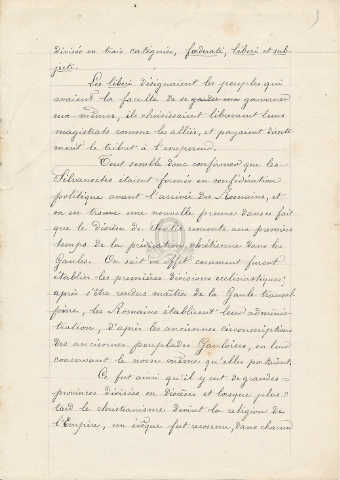 divisée en trois catégories, fœderati, liberi et sub-
jecti.
Les liberi désignaient les peuples qui
avaient la faculté de se gouverner
eux-mêmes, ils choisissaient librement leurs
magistrats comme les alliés, et payaient directe
ment le tribut à l'empereur.
Tout semble donc confirmer que les
Silvanectes étaient formés en confédération
politique avant l'arrivée des Romains, et
on en trouve une nouvelle preuve dans ce fait
que le diocèse de Senlis remonte aux premiers
temps de la prédication chrétienne dans les
Gaules. On sait en effet comment furent
établies les premières divisions ecclésiastiques;
après s'être rendus maîtres de la Gaule transal
pine, les Romains établirent leur adminis-
tration, d'après les anciennes circonscriptions
des anciennes peuplades Gauloises, en leur
conservant le nom même qu'elles portaient.
Ce fut ainsi qu'il y eut de grandes
provinces divisées en diocèses et lorsque plus
tard le christianisme devint la religion de
l'Empire, un évêque fut reconnu, dans chacun